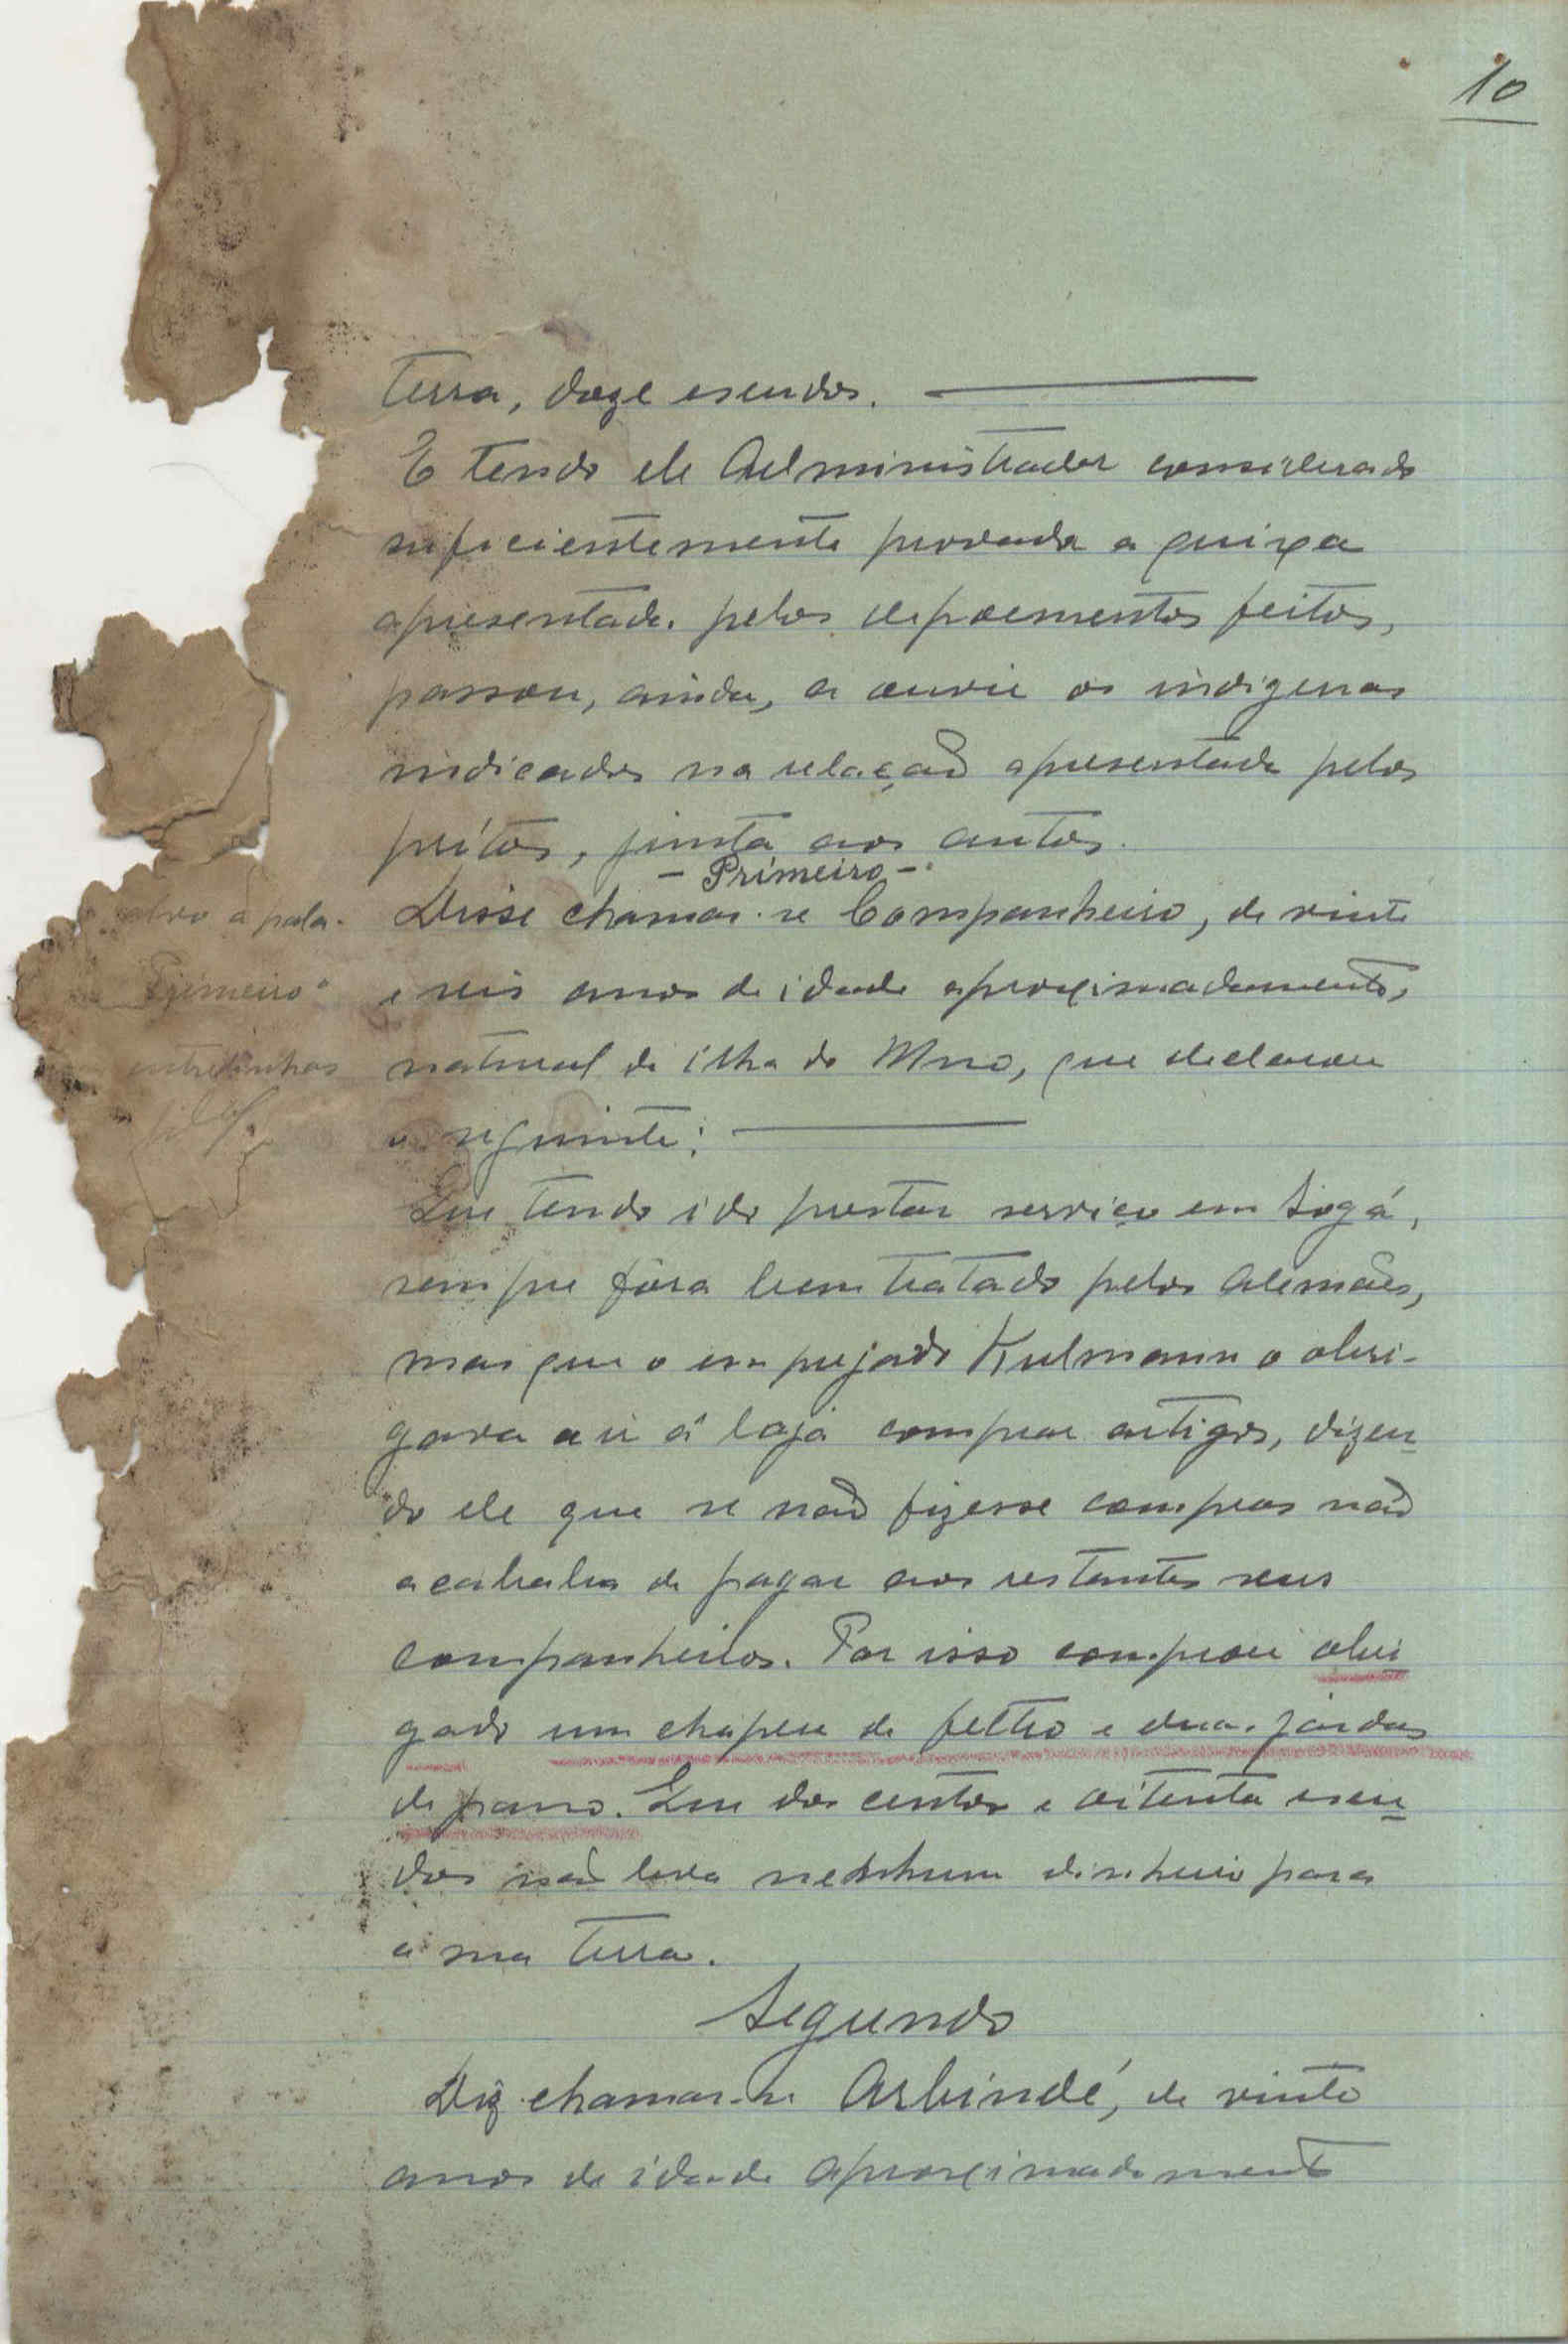 10
terra, doze escudos.
E tendo ele Administrador considerado
suficientemente provada a queixa
apresentada pelos depoementos feitos,
passou, ainda, a ouvir os indigenas
indicados na relação apresentada pelos
peritos, junta aos autos.
- Primeiro -
Disse chamar-se Companheiro, de vinte
e seis anos de idade aproximadamente,
natural da ilha do Uno, que declarou
o seguinte:
Que tendo ido prestar serviço em Sogá,
sempre fôra bem tratado pelos Alemães,
mas que o empregado Kulmann o obri-
gava a ir á loja comprar artigos, dizen-
do ele que se não fizesse compras não
acababa de pagar aos restantes seus
companheiros. Por isso comprou obri
gado um chapeu de feltro e duas jardas
de pano. Que dos cento e oitenta escu
dos não leva nenhum dinheiro para
a sua terra.
Segundo
Diz chamar-se Arbindé, de vinte
anos de idade aproximadamente
salvo a pala-
Primeiro"
entrelinhas